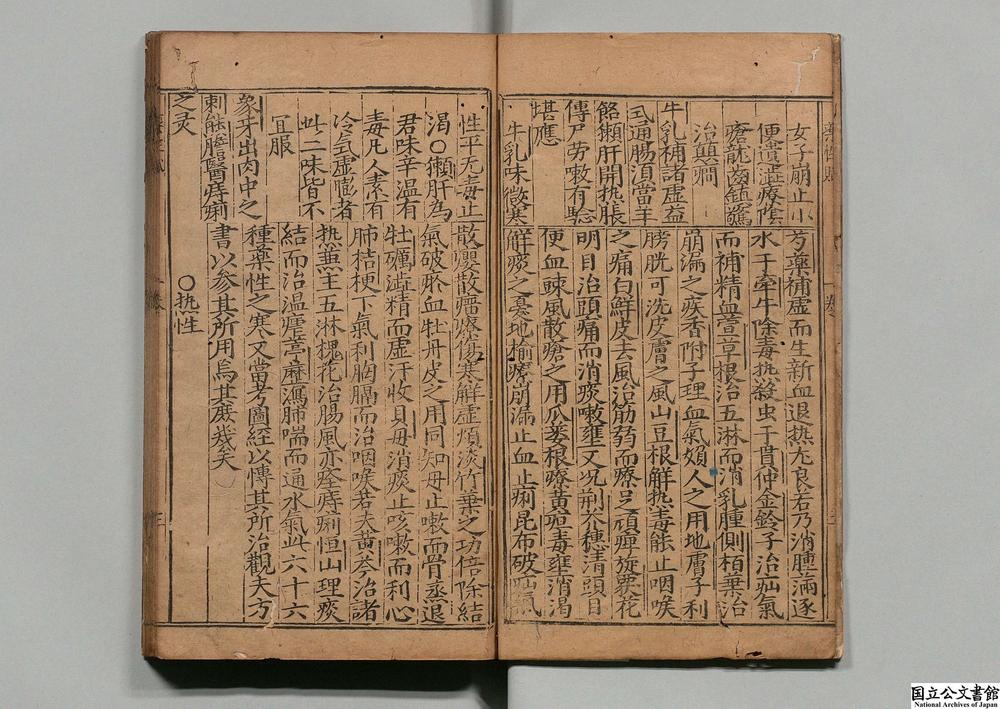 女子崩止小
便遺澁療陰
瘡龍齒鎮驚
治顛癇
牛乳補諸虛益
氣通腸須當羊
餎獺肝開热脹
傳尸勞嗽有騐
堪應
牛乳味微寒
芍藥補虛而生新血退热尤良若乃消腫滿逐
水于牽牛除毒热殺虫于貫仲金鈴子治疝氣
而補精血萱草根治五淋而消乳腫側栢葉治
崩漏之疾香附子理血氣婦人之用地膚子利
膀胱可洗皮膚之風山豆根解热毒能止咽喉
之痛白鮮皮去風治筋弱而療足頑痺旋覆花
明目治頭痛而消痰嗽壅又况荊芥穗清頭目
便血疎風散瘡之用瓜蔞根療黃疸毒壅消渴
解痰之憂地榆療崩漏止血止痢昆布破疝氣
性平无毒止
渴〇獺肝為
君味辛温有
毒凡人素有
冷氣虛膨者
此二味皆不
宜服
象牙出肉中之
刺能膽醫痔痢
之灵
散癭散瘤療傷寒解虛煩淡竹葉之功倍除結
氣破瘀血牡丹皮之用同知母止嗽而骨蒸退
牡礪澁精而虛汗收貝毋消痰止咳嗽而利心
肺桔梗下氣利胸膈而治咽喉若夫黃芩治諸
热蕪主五淋槐花治腸風亦痊痔痢恒山理痰
結而治温瘧葶藶瀉肺喘而通水氣此六十六
種藥性之寒又當考圖經以慱其所治觀夫方
書以参其所用焉其庶幾矣
〇热性
国立公文書館
National Archives of Japan